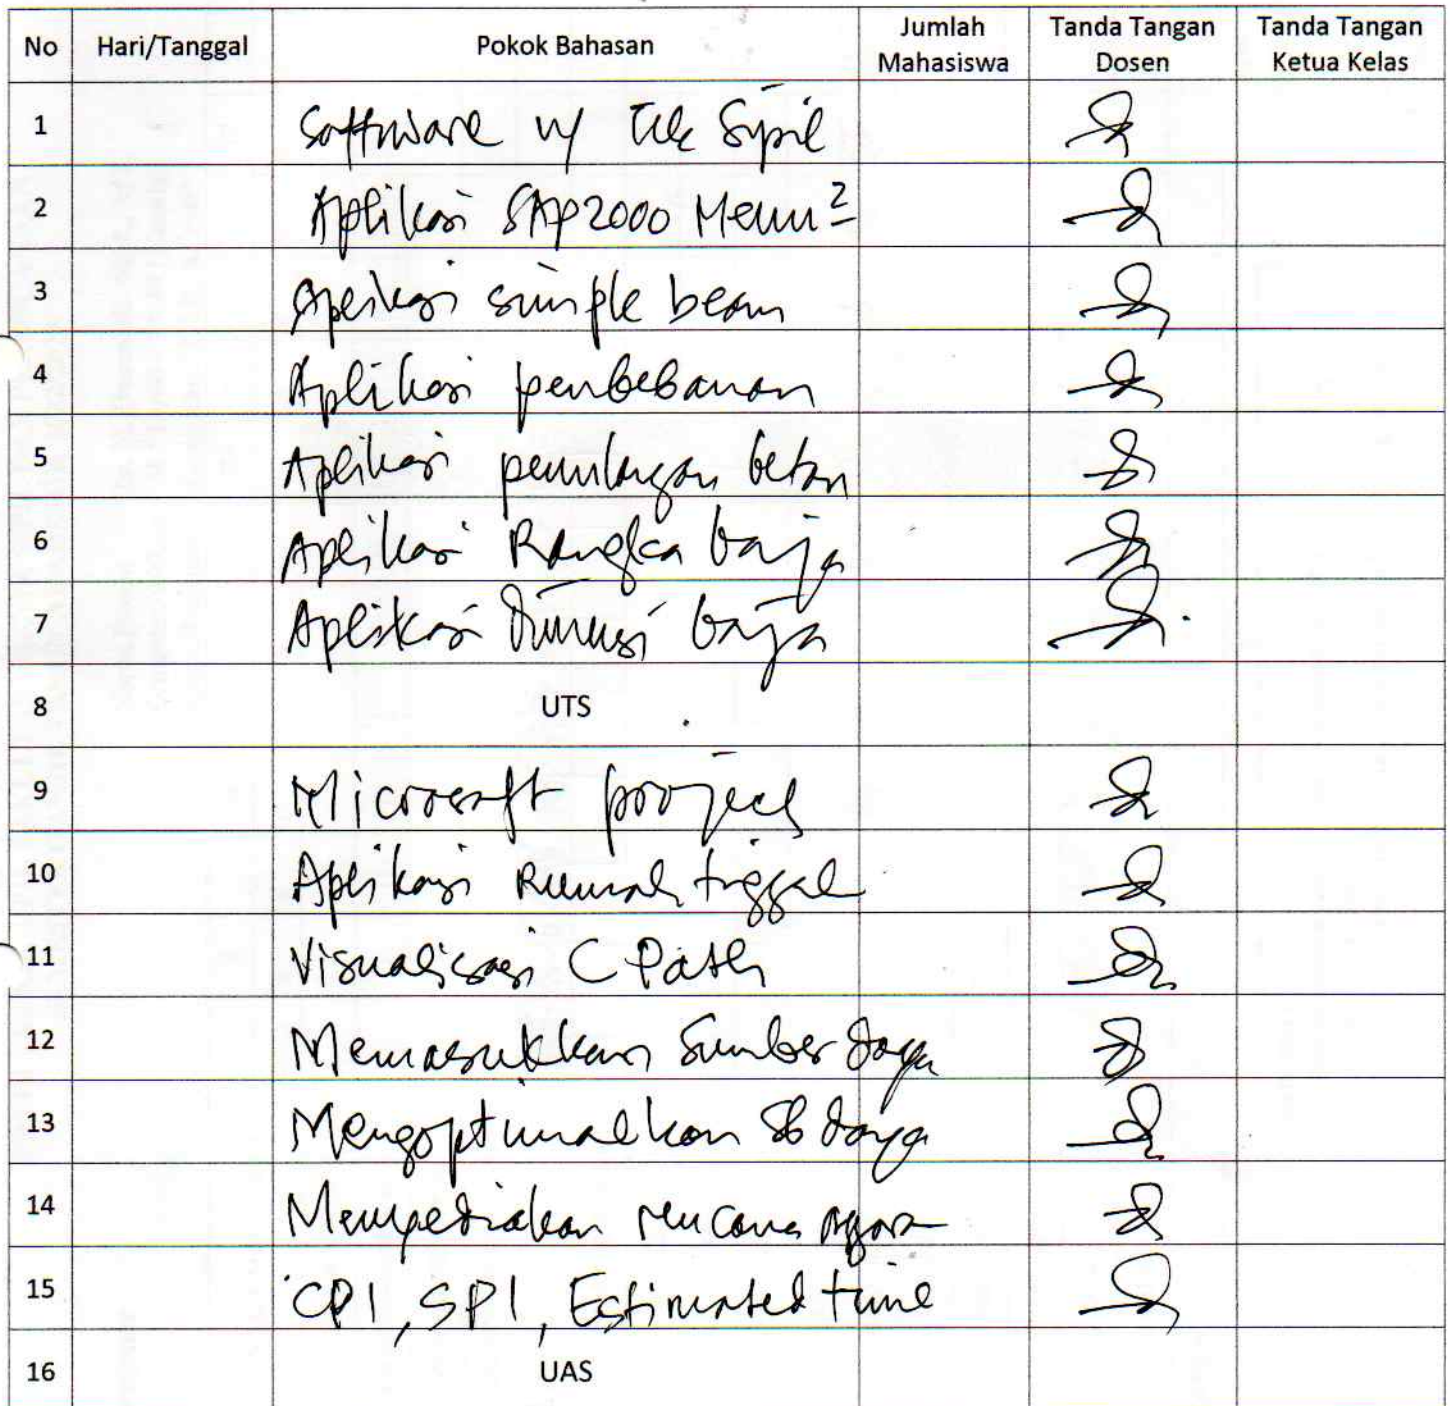 No Hari/Tanggal Pokok Bahasan Jumlah Mahasiswa Tanda Tangan Dosen Tanda Tangan Ketua Kelas
1 Software u/ Tek Sipil
2 Aplikasi SAP2000 Menu²
3 Aplikasi simple beam
4 Aplikasi pembebanan
5 Aplikasi penulangan beton
6 Aplikasi Rangka baja
7 Aplikasi Dimensi baja
8 UTS
9 Microsoft project
10 Aplikasi Rumah tinggal
11 Visualisasi C Path
12 Memasukkan Sumber daya
13 Mengoptimalkan Sb daya
14 Menyediakan rencana
15 CPI, SPI, Estimated time
16 UAS